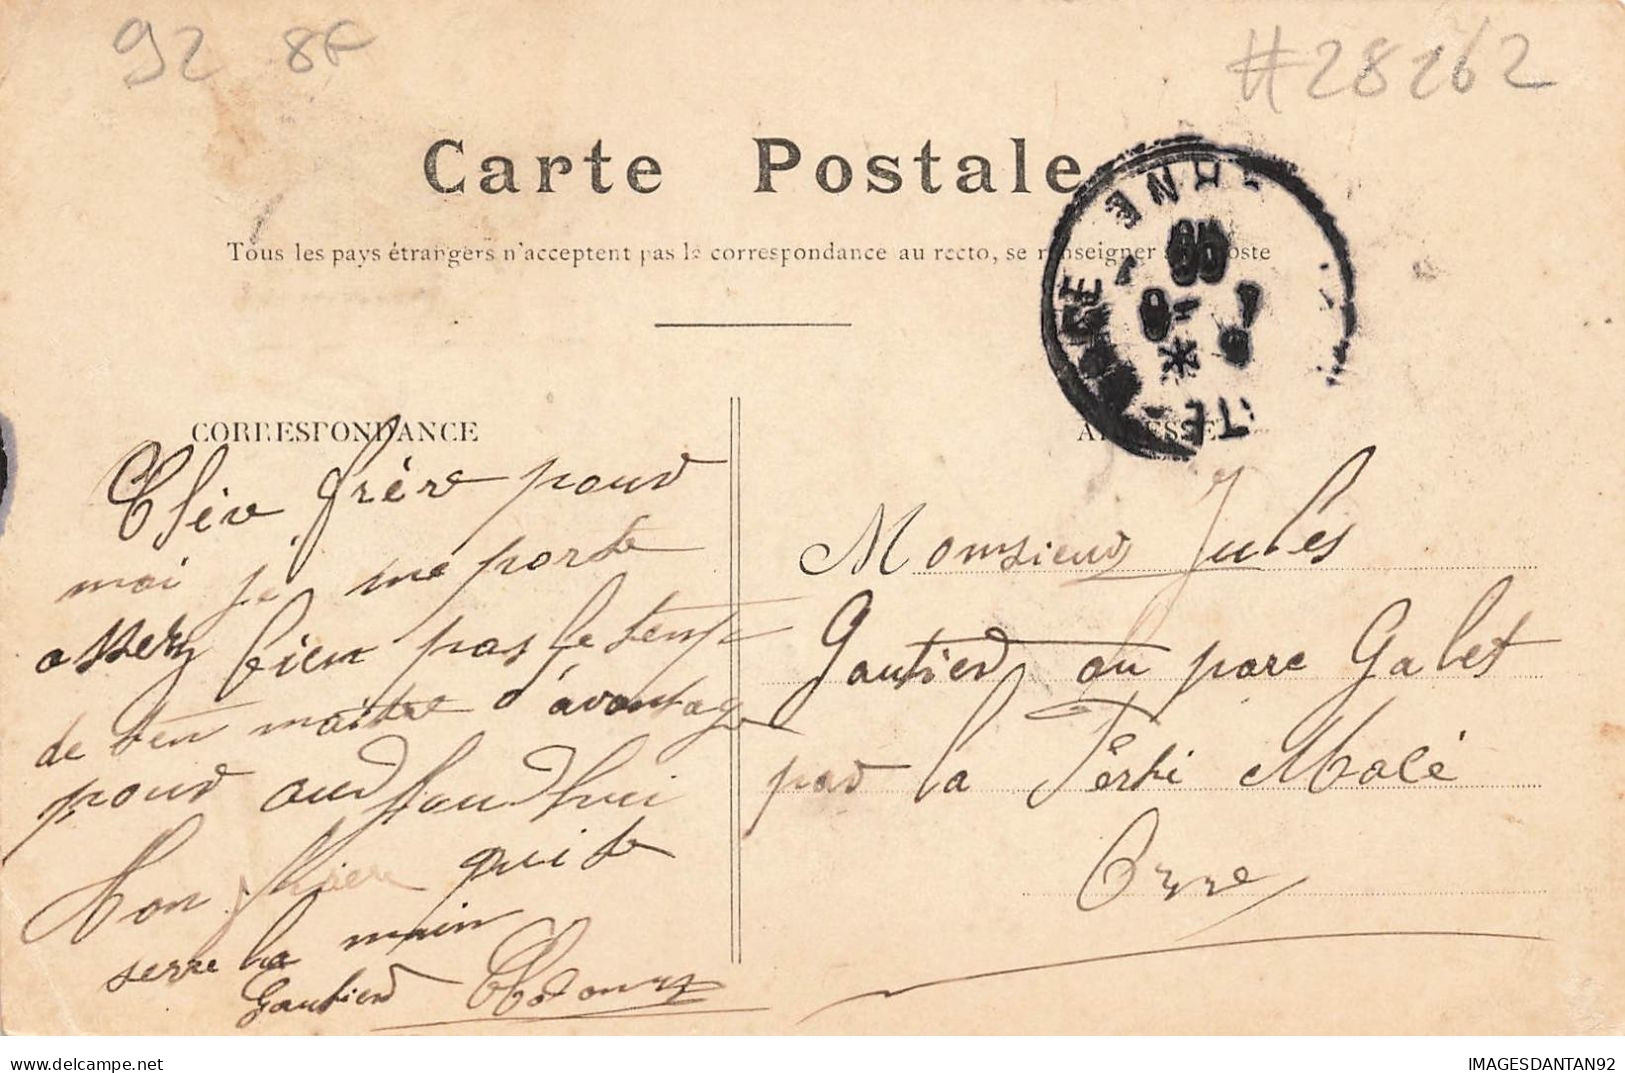 92 8F
#28262
Carte Postale
Tous les pays étrangers n'acceptent pas la correspondance au recto, se renseigner à la poste
CORRESPONDANCE
frère pour
moi je me porte
assez bien pas le temp
de ten maitre d'avantage
pour aud jourd'hui
ton frère qui te
serre la main
Gautier
ADRESSE
Monsieur Jules
Gautier au parc Galet
par la Ferté Macé
Orne
IMAGESDANTAN92